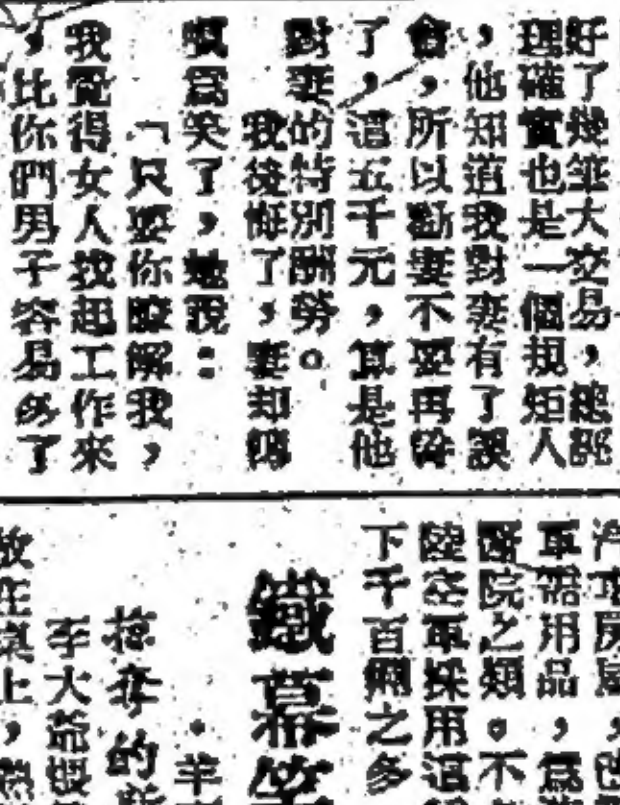 好了幾筆大交易，總經
理確實也是一個規矩人
，他知道我對妻有了誤
會，所以勸妻不要再幹
了，這五千元，算是他
對妻的特別酬勞。
我後悔了，妻却嗎
嗔爲笑了，她說：
「只要你瞭解我，
我覺得女人找起工作來
，比你們男子容易多了
軍需用品，爲
醫院之類。不
陸空軍採用這
下千百個之多
鐵幕
・羊
掠奪的
李大爺
放在桌上，